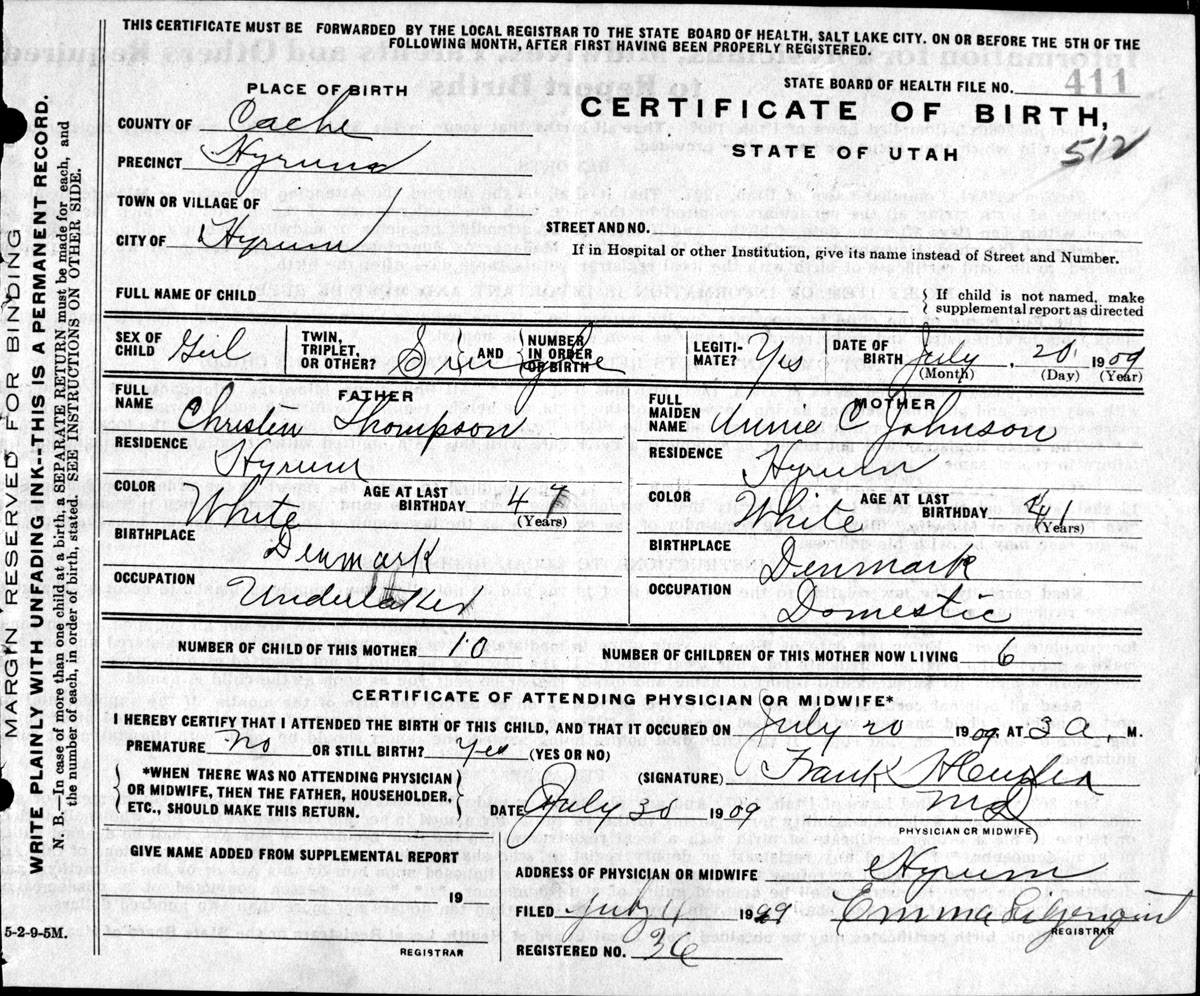 THIS CERTIFICATE MUST BE FORWARDED BY THE LOCAL REGISTRAR TO THE STATE BOARD OF HEALTH, SALT LAKE CITY. ON OR BEFORE THE 5TH OF THE
FOLLOWING MONTH, AFTER FIRST HAVING BEEN PROPERLY REGISTERED.
MARGIN RESERVED FOR BINDING
WRITE PLAINLY WITH UNFADING INK--THIS IS A PERMANENT RECORD.
N. B.—In case of more than one child at a birth, a SEPARATE RETURN must be made for each, and
the number of each, in order of birth, stated. SEE INSTRUCTIONS ON OTHER SIDE.
STATE BOARD OF HEALTH FILE NO. 411
PLACE OF BIRTH
CERTIFICATE OF BIRTH,
STATE OF UTAH
512
COUNTY OF Cache
PRECINCT Hyrum
TOWN OR VILLAGE OF
CITY OF Hyrum
STREET AND NO.
If in Hospital or other Institution, give its name instead of Street and Number.
FULL NAME OF CHILD
{ If child is not named, make
supplemental report as directed
SEX OF CHILD Girl
TWIN, TRIPLET, OR OTHER? Single AND NUMBER IN ORDER OF BIRTH
LEGITIMATE? Yes
DATE OF BIRTH July, 20, 1909
(Month) (Day) (Year)
FATHER
FULL NAME Thompson
RESIDENCE Hyrum
COLOR White AGE AT LAST BIRTHDAY 47 (Years)
BIRTHPLACE Denmark
OCCUPATION Undertaker
MOTHER
FULL MAIDEN NAME Annie C Johnson
RESIDENCE Hyrum
COLOR White AGE AT LAST BIRTHDAY 41 (Years)
BIRTHPLACE Denmark
OCCUPATION Domestic
NUMBER OF CHILD OF THIS MOTHER 10 NUMBER OF CHILDREN OF THIS MOTHER NOW LIVING 6
CERTIFICATE OF ATTENDING PHYSICIAN OR MIDWIFE*
I HEREBY CERTIFY THAT I ATTENDED THE BIRTH OF THIS CHILD, AND THAT IT OCCURED ON July 20 1909, AT 3 a, M.
PREMATURE no OR STILL BIRTH? yes (YES OR NO)
{ *WHEN THERE WAS NO ATTENDING PHYSICIAN
OR MIDWIFE, THEN THE FATHER, HOUSEHOLDER,
ETC., SHOULD MAKE THIS RETURN. }
(SIGNATURE) Frank
MD
PHYSICIAN OR MIDWIFE
DATE July 20 1909
GIVE NAME ADDED FROM SUPPLEMENTAL REPORT
19
REGISTRAR
ADDRESS OF PHYSICIAN OR MIDWIFE Hyrum
FILED July 19
Emma
REGISTRAR
REGISTERED NO. 36
5-2-9-5M.